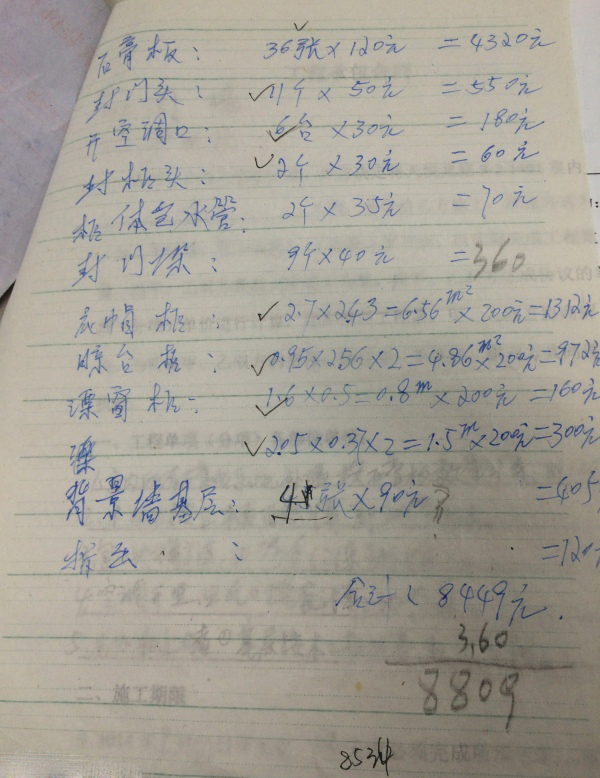 石膏板: 36张×120元 =4320元
封门头: 11个×50元 =550元
开空调口: 6台×30元 =180元
封柜头: 2个×30元 =60元
柜体包水管: 2个×35元 =70元
封门垛: 9个×40元 =360
衣帽柜: 2.7×2.43=6.56m²×200元=1312元
晾台柜: 0.95×2.56×2=4.86m²×200元=972元
漂窗柜: 1.6×0.5=0.8m×200元=160元
漂 2.05×0.37×2=1.5m×200元=300元
背景墙基层: 4 张×90元? =405
: =120
合计: 8449元.
3,60
8809
853
二、施工期限